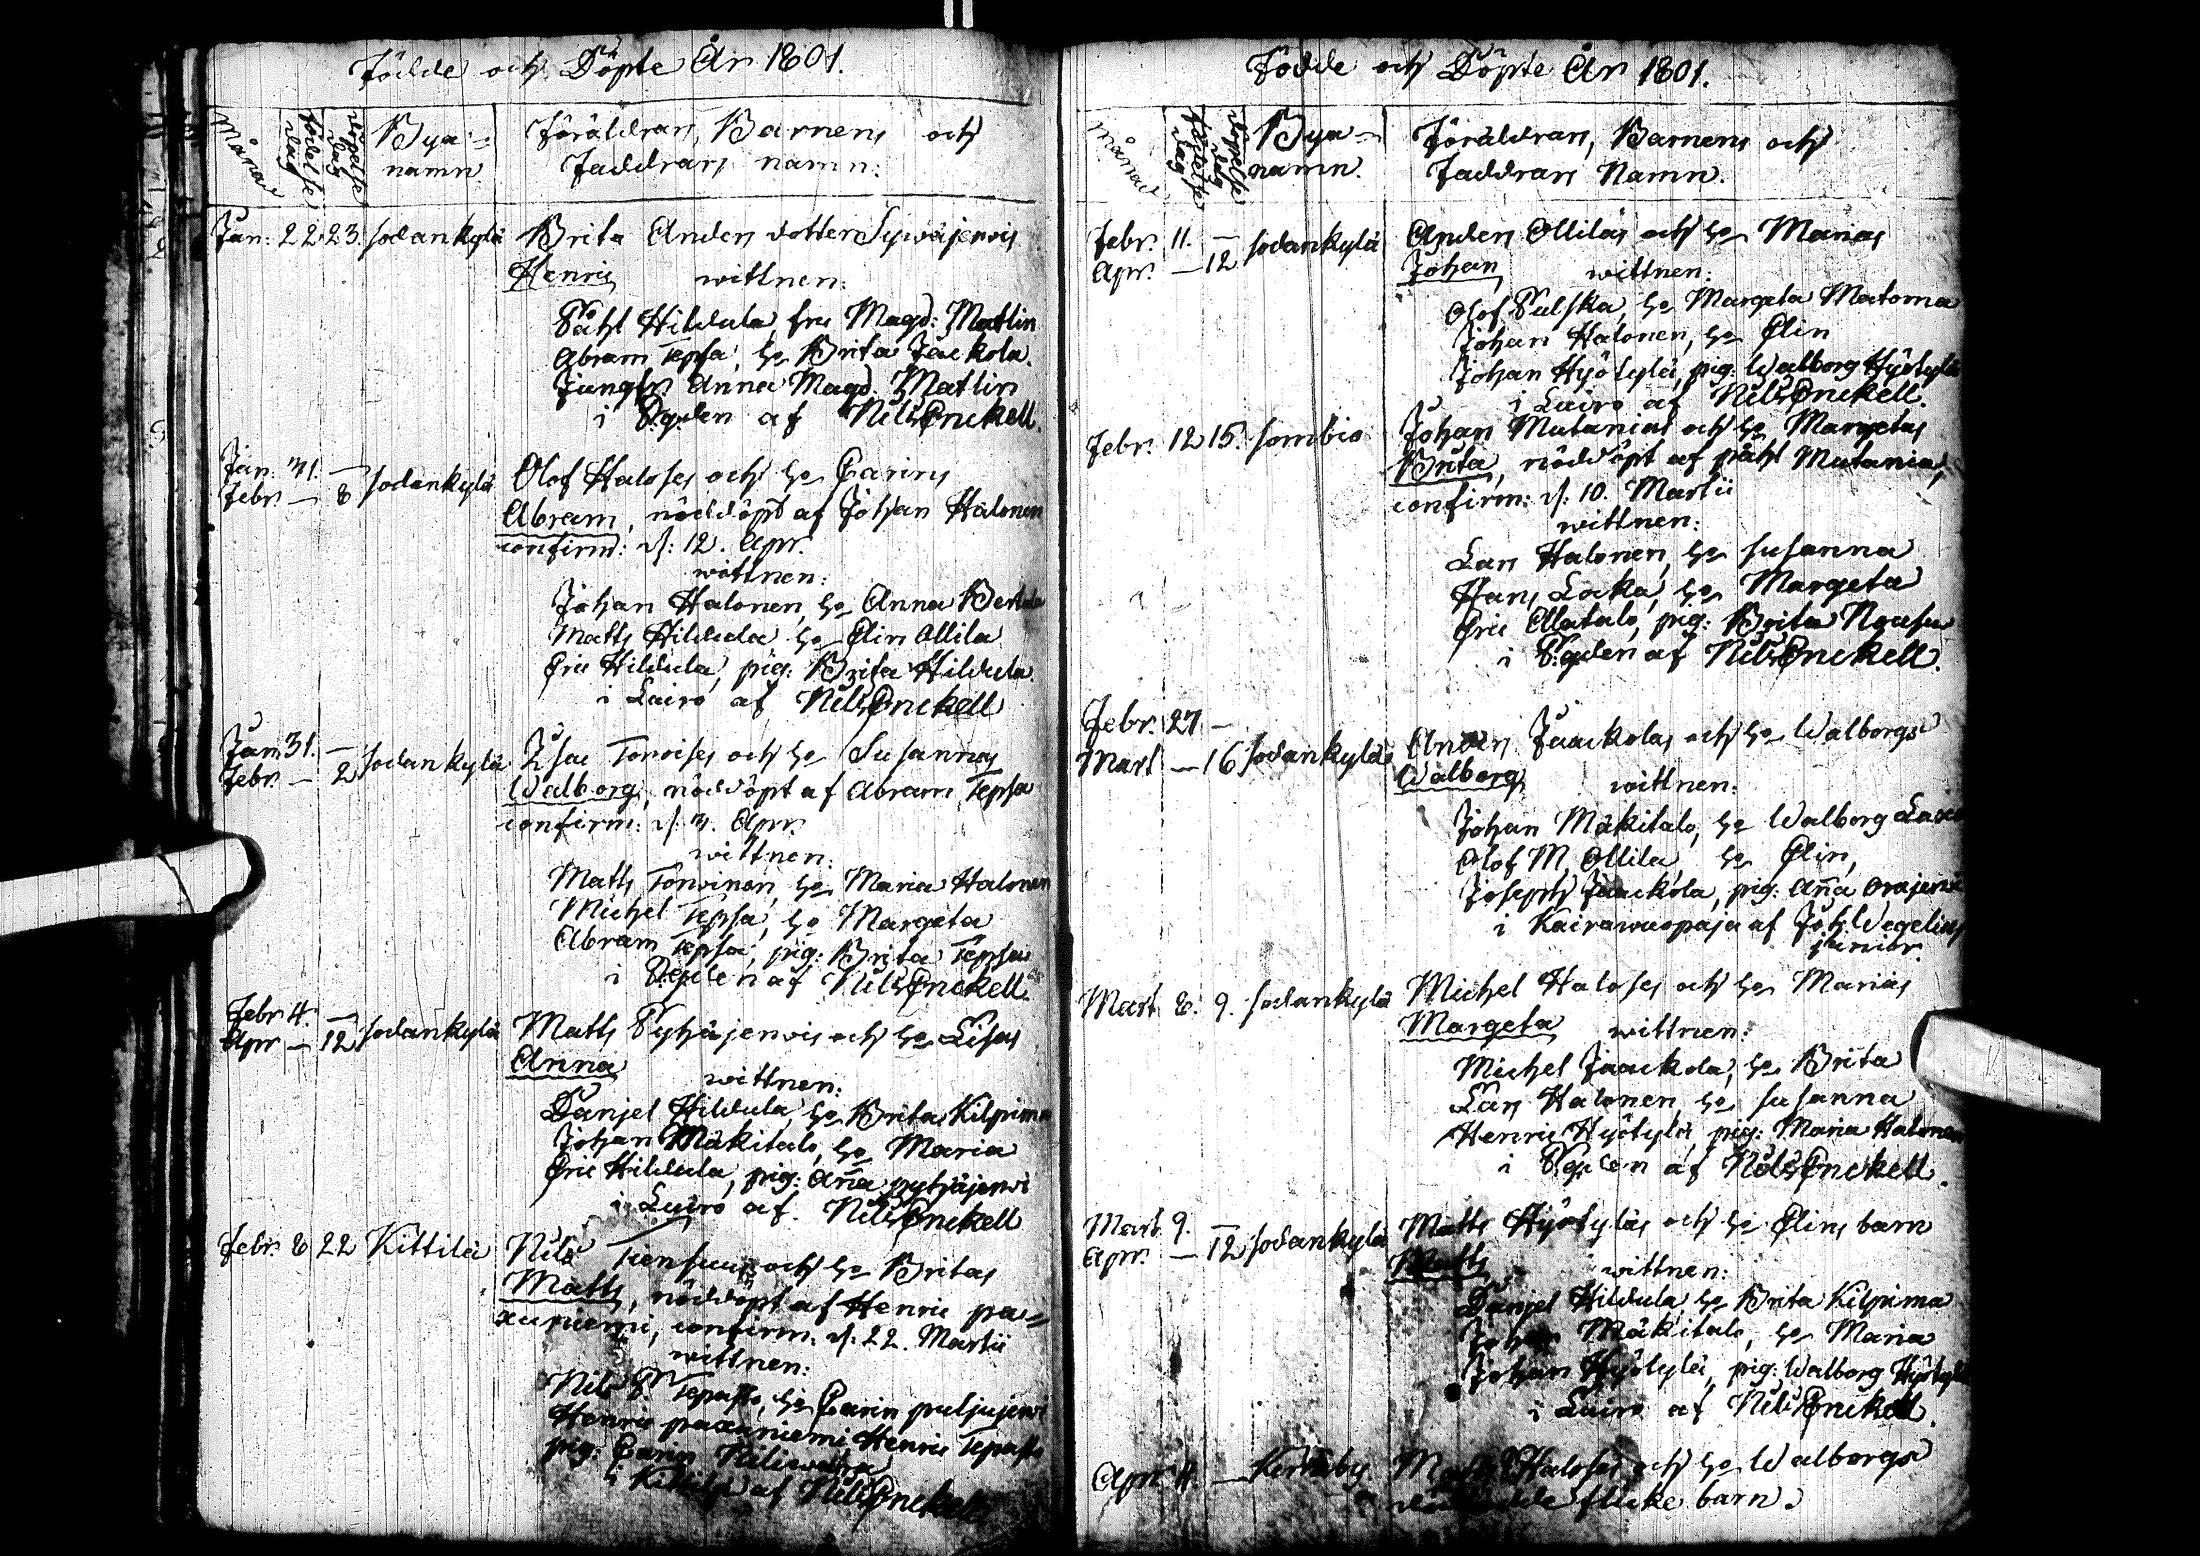 Födde och Döpte År 1801.
Månad
födelse dag
döpelse dag
Bya=
namn
Föräldrars, Barnens och
Faddrars namn:
Jan: 22 23. Sodankylä Brita Anders dotter Sywäjerwis
Henric wittnen:
Påhl Hildula, fru Magd: Matlin
Abram Tepsa, h:o Brita Jaakola.
Jungfr. Anna Magd. Matlin
i af Nils Enckell.
Jan. 31. —
Febr. — 8 Sodankylä Olof Haloses och h:o Carins
Abram, nöddöpt af Johan Halonen
confirm: d: 12. Apr.
wittnen:
Johan Halonen, h:o Anna
Matts Hildula h:o Elin Ollila
Eric Hildula, pig: Brita Hildula
i Luiro af Nils Enckell
Jan 31. —
Febr. — 2 Sodankylä Isac Torvises och h:o Susannas
Walborg, nöddöpt af Abram Tepsa
confirm: d: 3. Apr.
wittnen:
Matts Torvinen, h:o Maria Halonen
Michel Tepsa, h:o Margeta
Abram Tepsa, pig: Brita Tepsa
i af Nils Enckell.
Febr 4. —
Apr — 12 Sodankylä Matts Pyhäjerwis och h:o Lisas
Anna
wittnen:
Danjel Hildula, h:o Brita Kilprima
Johan Mäkitalo, h:o Maria
Eric Hildula, pig: Anna pyhäjerwi
i Luiro af. Nils Enckell
Febr. 8 22 Kittilä Nils och h:o Britas
Matts, nöddöpt af Henric pa=
xuniemi, confirm. d: 22. Martii
wittnen:
Nils Tepasto, h:o Carin puljujerwi
Henric paxuniemi, Henric Tepasto
pig: Carin Niliwaara
i Kittilä af Nils Enckell
Födde och Döpte År 1801.
Månad
födelse dag
döpelse dag
Bya=
namn.
Föräldrars, Barnens och
Faddrars Namn.
Febr. 11. —
Apr. — 12 Sodankylä Anders Ollilas och h:o Marias
Johan wittnen:
Olof Pulska, h:o Margeta Matoma
Johan Halonen, h:o Elin
Johan Hyötylä, pig: Walborg Hyötylä
i Luiro af Nils Enckell.
Febr. 12 15. Sombio Johan Mutanias och h:o Margetas
Brita, nöddöpt af påhl Mutania,
confirm: d: 10. Martii
wittnen:
Lars Halonen, h:o Susanna
Hans Locka, h:o Margeta
Eric Alatalo, pig: Brita
i af Nils Enckell.
Febr. 27 —
Mart — 16 Sodankylä Anders Jaackolas och h:o Walborgs
Walborg wittnen:
Johan Mäkitalo, h:o Walborg
Olof M Ollila h:o Elin,
Joseph Jaackola, pig: Aña Orajerwi
i Kairawuopaja af Joh Wegelius
junior.
Mart 8. 9. Sodankylä Michel Haloses och h:o Marias
Margeta wittnen:
Michel Jaackola, h:o Brita
Lars Halonen, h:o Susanna
Henric Hyötylä, pig: Maria Halonen
i af Nils Enckell.
Mart 9. —
Apr. — 12 Sodankylä Matts Hyötyläs och h:o Elins barn
Matts wittnen:
Danjel Hildula, h:o Brita Kilprima
Johan Mäkitalo, h:o Maria
Johan Hyötylä, pig: Walborg Hyötylä
i Luiro af Nils Enckell.
Apr. 4. — Haloses och h:o Walborgs
flicke barn.